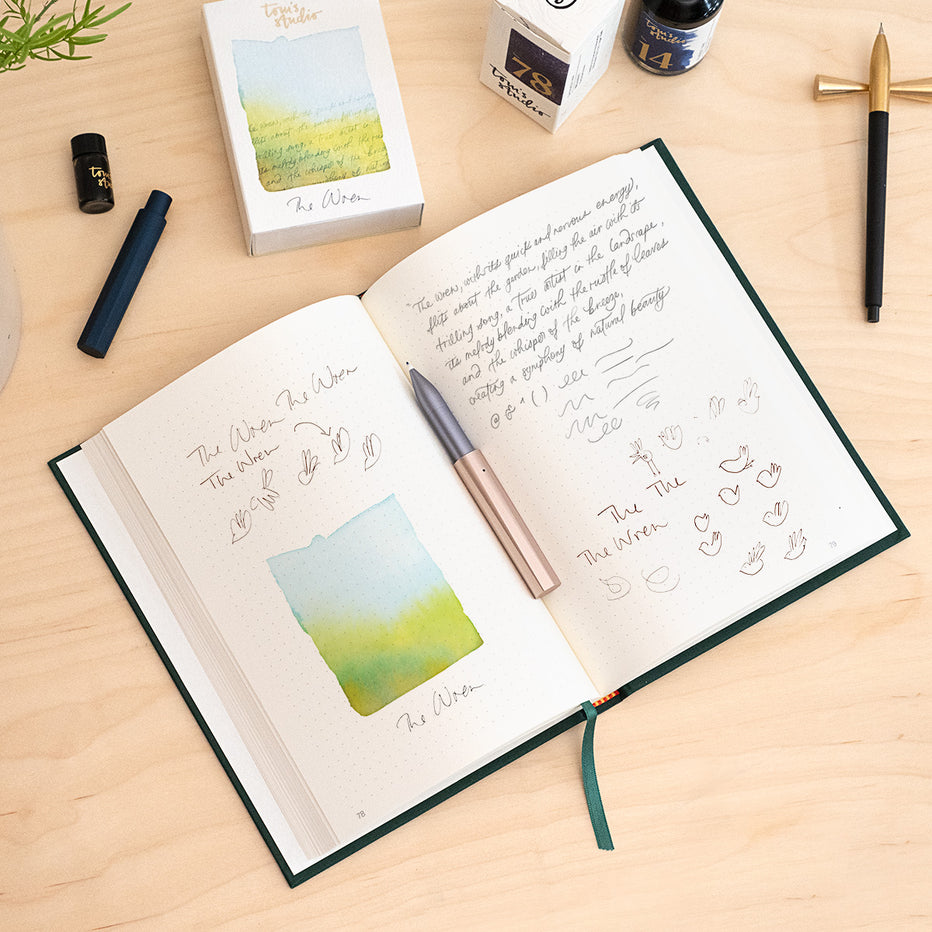 tom's
studio
The Wren
78
tom's
studio
tom's
studio
14
tom's
studio
The Wren The Wren
The Wren
The Wren
78
"The Wren, with its quick and nervous energy,
flits about the garden, filling the air with its
trilling song, a true artist in the landscape,
its melody blending with the rustle of leaves
and the whisper of the breeze,
creating a symphony of natural beauty
@ & ^ ( )
The The
The Wren
79